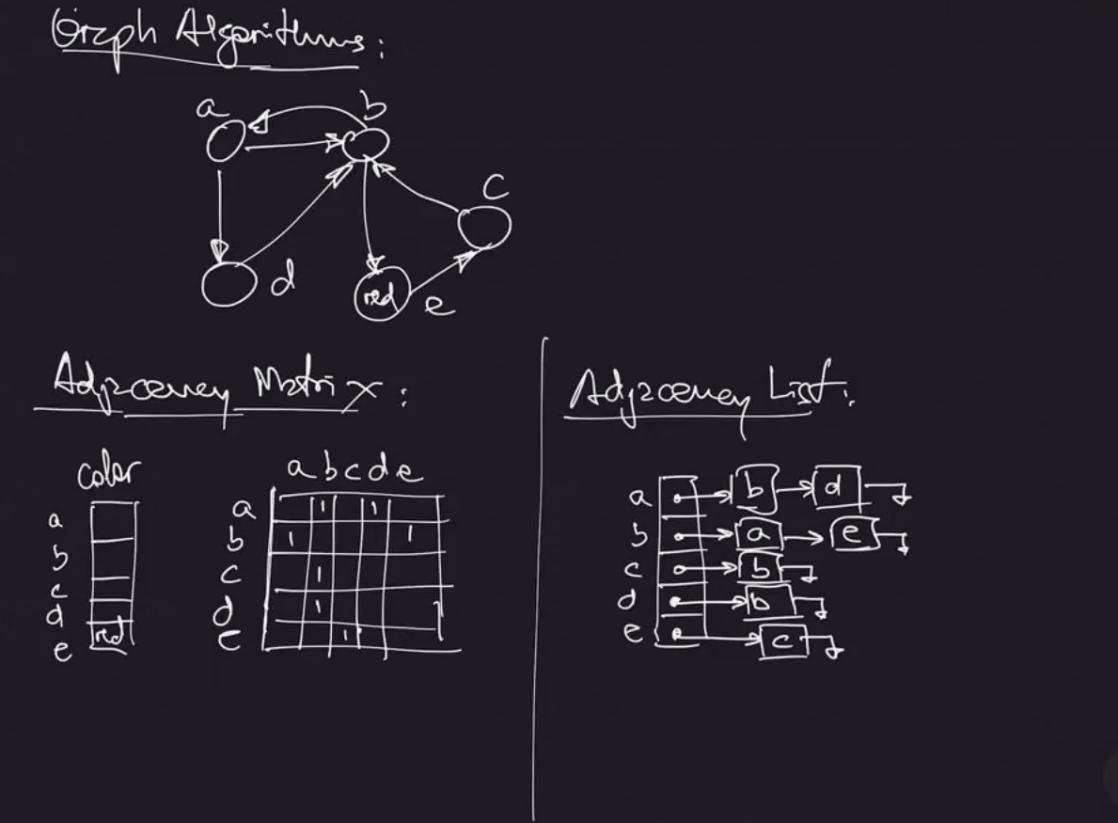 Graph Algorithms:
a b
c
d red e
Adjacency Matrix:
color a b c d e
a a 1 1
b b 1 1
c c 1
d d 1
e red e 1
Adjacency List:
a b d
b a e
c b
d b
e c